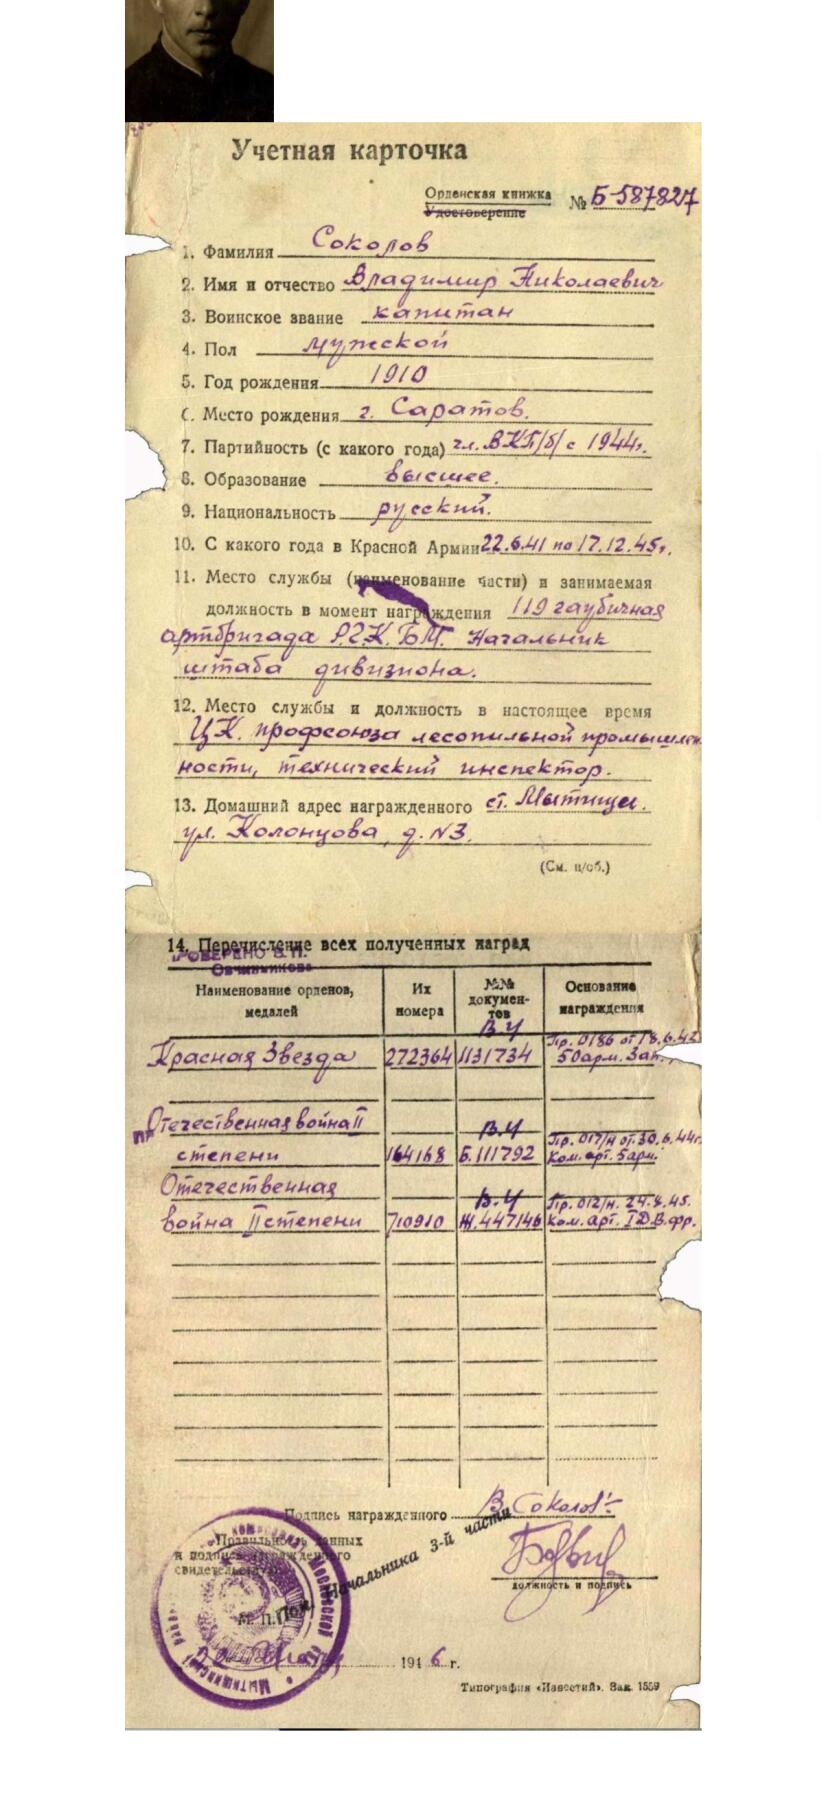 Учетная карточка
Орденская книжка
Удостоверение
№ Б-587827
1. Фамилия Соколов
2. Имя и отчество Владимир Николаевич
3. Воинское звание капитан
4. Пол мужской
5. Год рождения 1910
6. Место рождения г. Саратов.
7. Партийность (с какого года) чл. ВКП/б/ с 1944г.
8. Образование высшее.
9. Национальность русский.
10. С какого года в Красной Армии 22.6.41 по 17.12.45г.
11. Место службы (наименование части) и занимаемая
должность в момент награждения 119 гаубичная
артбригада РГК. БМ. Начальник
штаба дивизиона.
12. Место службы и должность в настоящее время
ЦК. профсоюза лесопильной промышлен
ности, технический инспектор.
13. Домашний адрес награжденного ст. Мытищи.
ул. Колонцова, д. №3.
(См. н/об.)
14. Перечисление всех полученных наград
ПРОВЕРЕНО В П.
Овчинникова
Наименование орденов, медалей
Их номера
№№ документов
Основание награждения
Красная Звезда 272364 В.У 1131734 Пр. 0186 от 18.6.42 50арм. Зап.
Отечественная война II
степени 164168 В.У Б.111792 Пр. 017/н от 30.6.44г. Ком. арт. 5арм.
Отечественная
война II степени 710910 В.У Ж.447146 Пр. 012/н. 24.9.45. Ком. арт. I Д.В.фр.
Подпись награжденного В. Соколов
Правильность данных
и подпись награжденного
свидетельствую
Пом. Начальника 3-й части
должность и подпись
М. П.
1946 г.
Типография «Известий». Зак. 1559